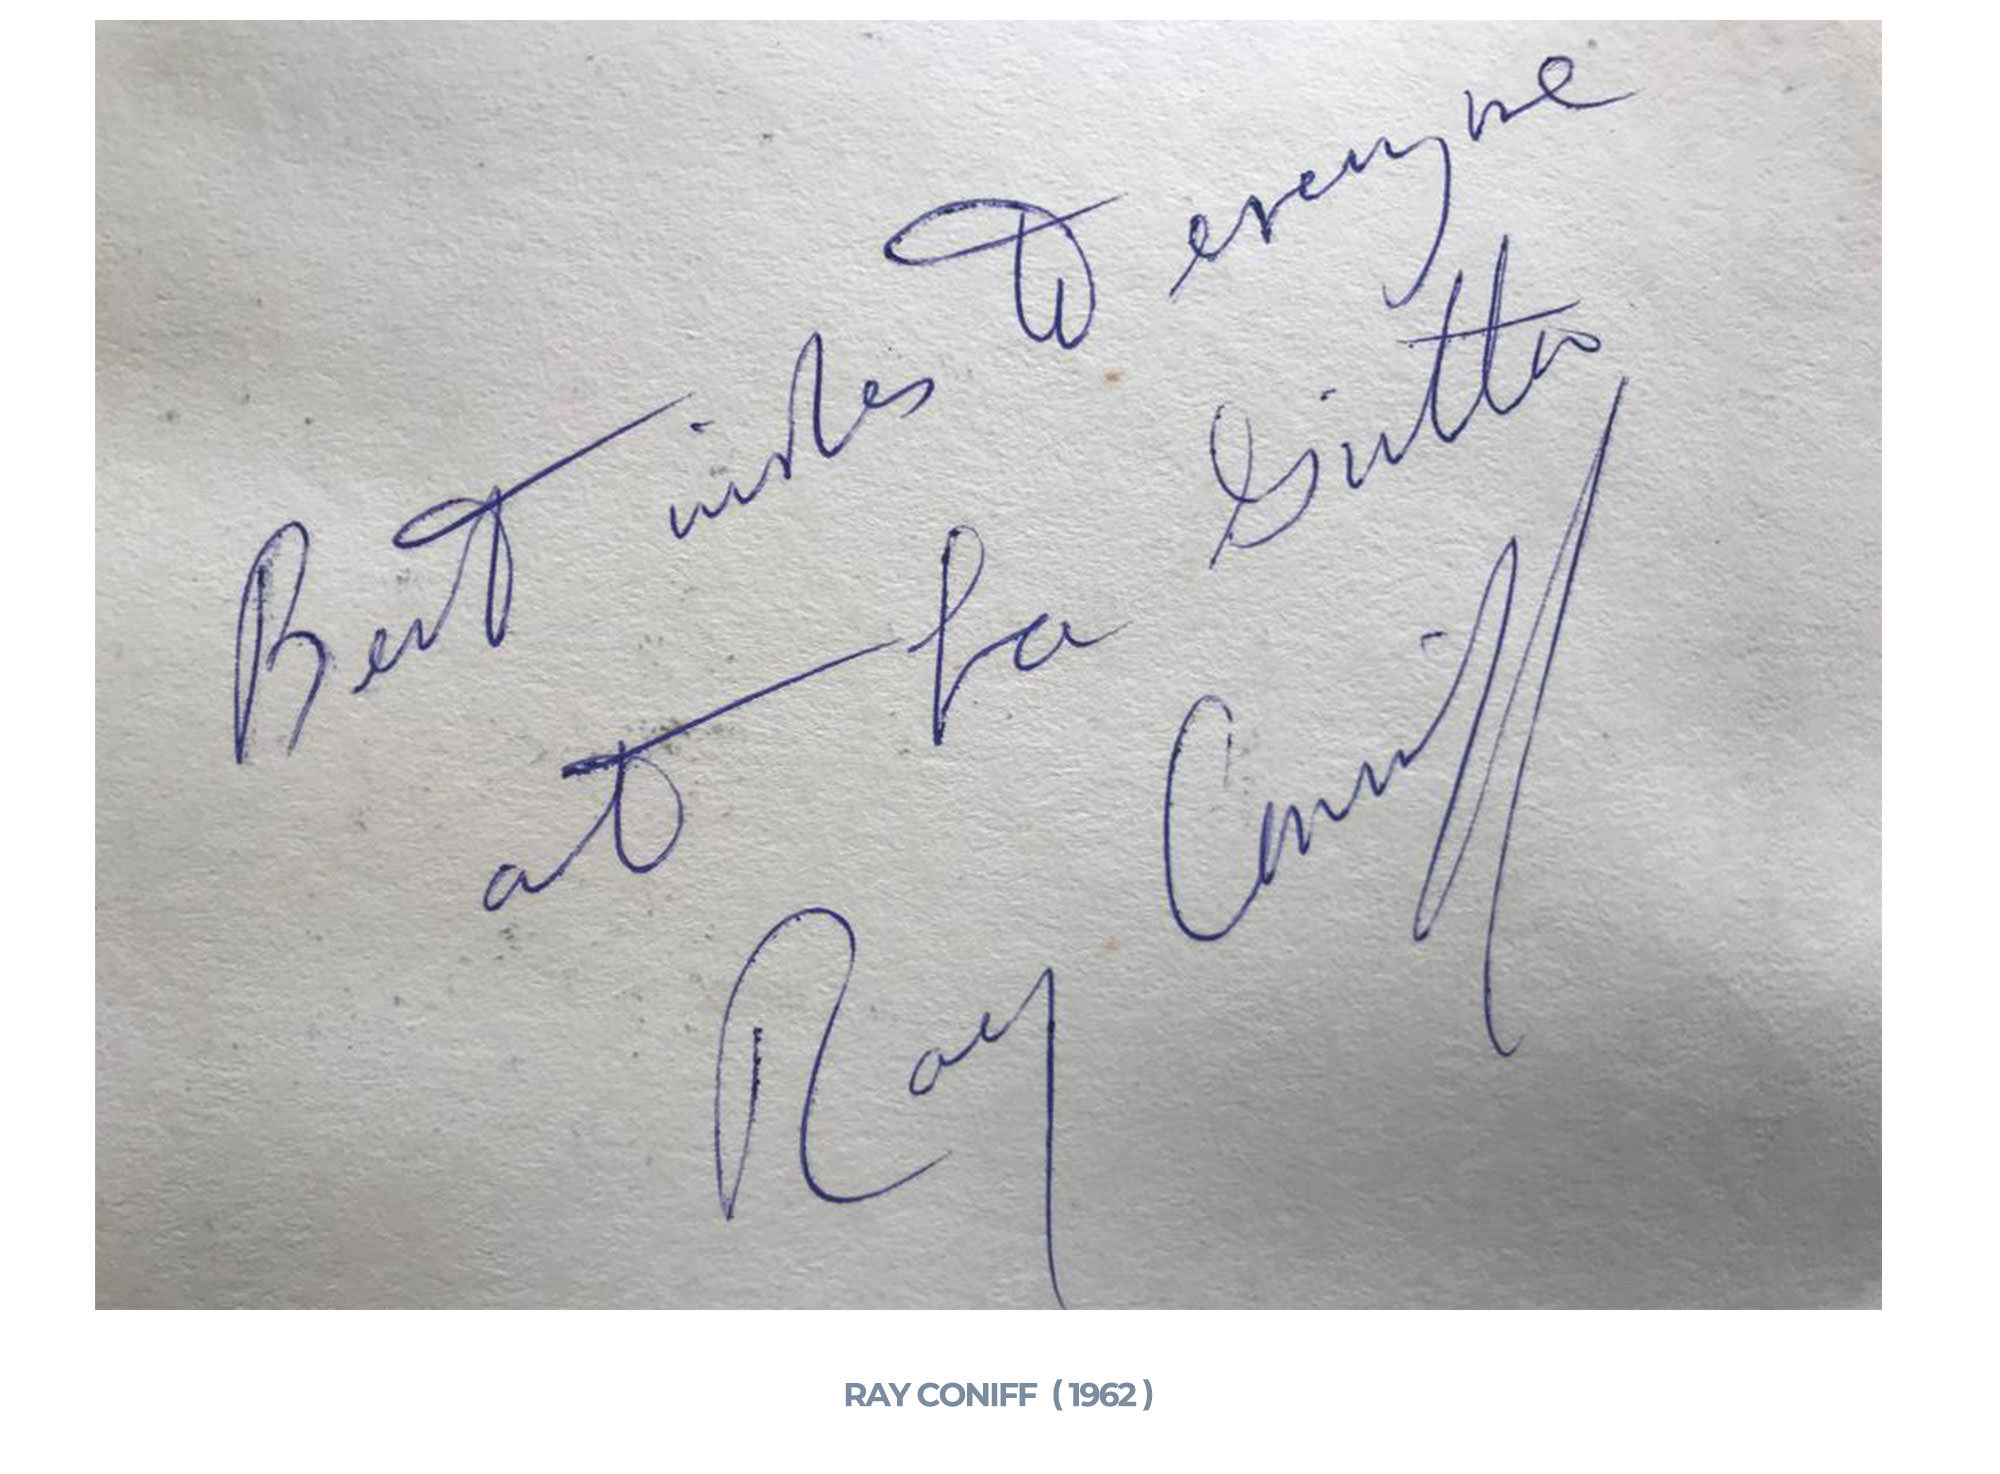 Best wishes to everyone
at La Gritta
Ray Conniff
RAY CONIFF ( 1962 )